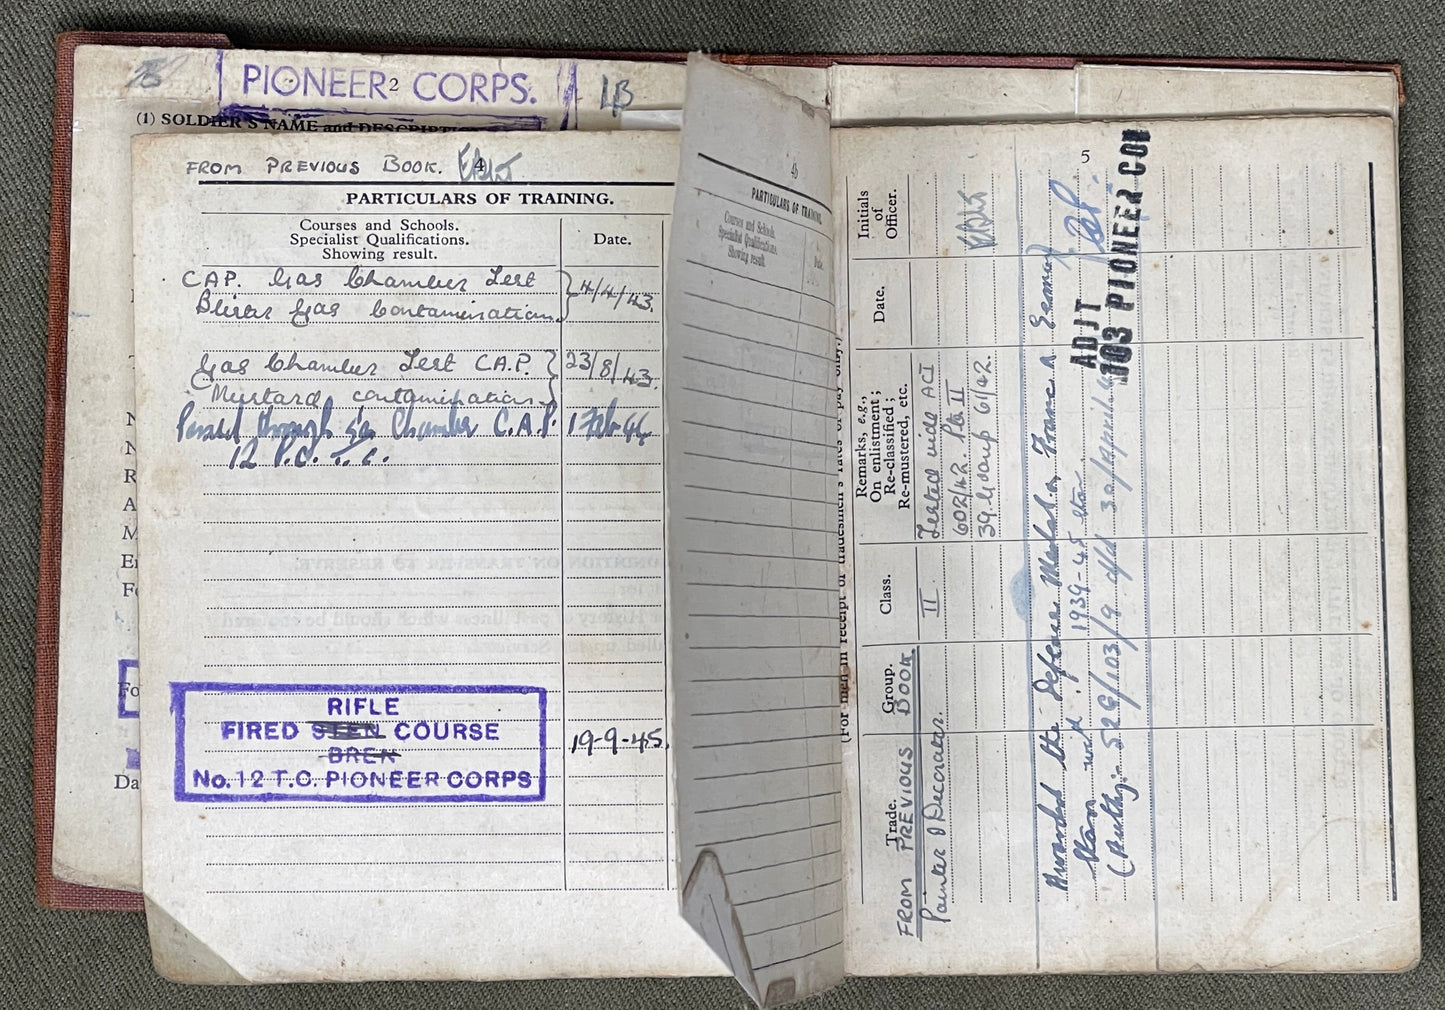 PIONEER CORPS.
2
1B
(1) SOLDIER'S NAME and DESCRIPTION
FROM PREVIOUS BOOK.
4
PARTICULARS OF TRAINING.
Courses and Schools.
Specialist Qualifications.
Showing result.
Date.
CAP. Gas Chamber Test
Blister Gas Contamination
4/4/43.
Gas Chamber Test C.A.P.
23/8/43.
Mustard contamination
Passed through Gas Chamber C.A.P.
1 Feb 44
12 P.C. T.C.
RIFLE
FIRED STEN COURSE
BREN
No. 12 T.C. PIONEER CORPS
19-9-45.
Da
4b
PARTICULARS OF TRAINING.
Courses and Schools.
Specialist Qualifications.
Showing result.
Date.
5
(For men in receipt of tradesmen's rates of pay only.)
Trade.
Group.
Class.
Remarks, e.g.,
On enlistment;
Re-classified;
Re-mustered, etc.
Date.
Initials
of
Officer.
FROM PREVIOUS BOOK.
Painter & Decorator.
II
Tested vide ACI
602/42. Pt II
39 Group 61/42.
Awarded the Defence Medal & France & Germany
Star with 1939-45 Star
(Auth:- 526/103/9 dfd 30/April 4
ADJT
103 PIONEER COY